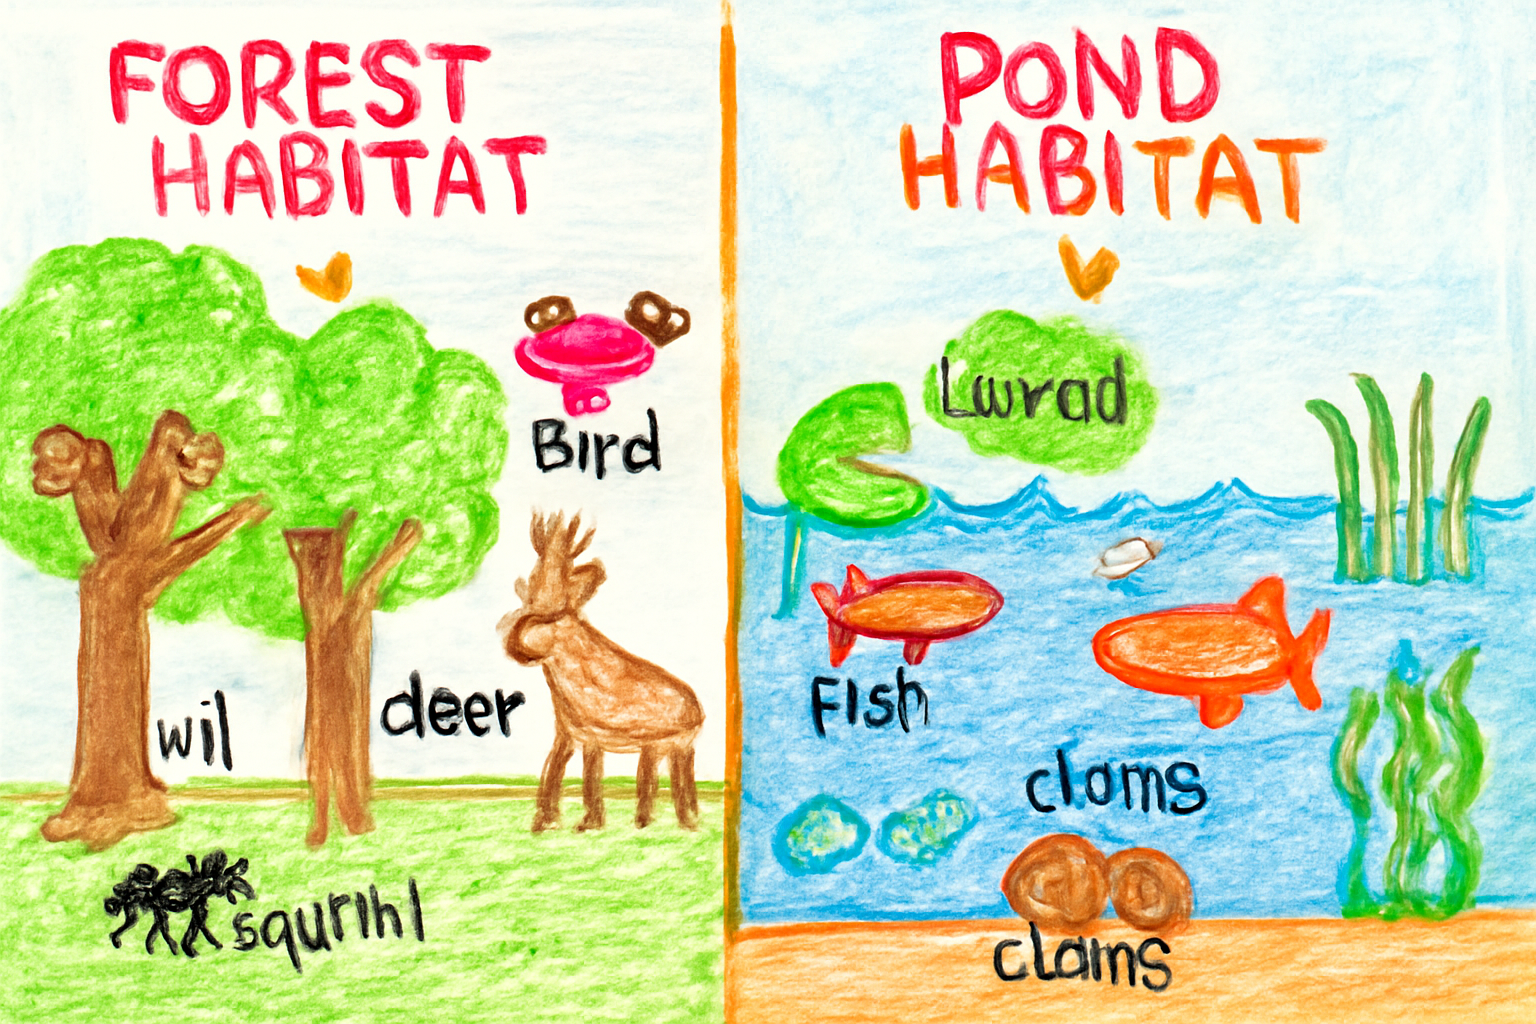 FOREST
HABITAT
Bird
wil
deer
squrihl
POND
HABITAT
Lwrad
Fish
clams
clams